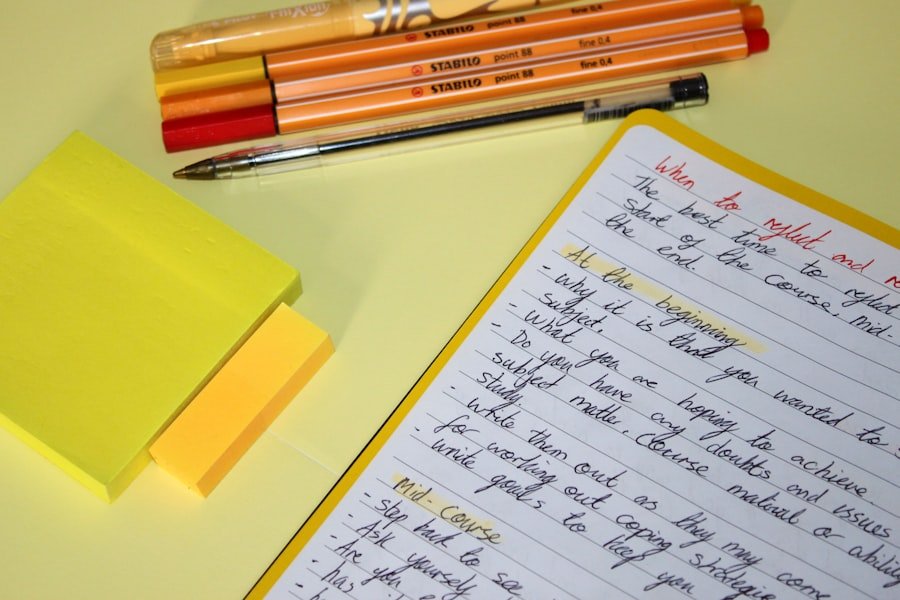 STABILO point 88 fine 0,4
STABILO point 88 fine 0,4
STABILO point 88 fine 0,4
When to reflect and
The best time to reflect
start of the course, mid-
the end.
At the beginning
- Why it is that you wanted to
subject.
- What you are hoping to achieve
- Do you have any doubts and issues
subject matter, course material or ability
study.
- write them out as they may come
for working out coping strategie
- write goals to keep you
Mid-Course
- Step back to see
- Ask yourself
- Are you
- has